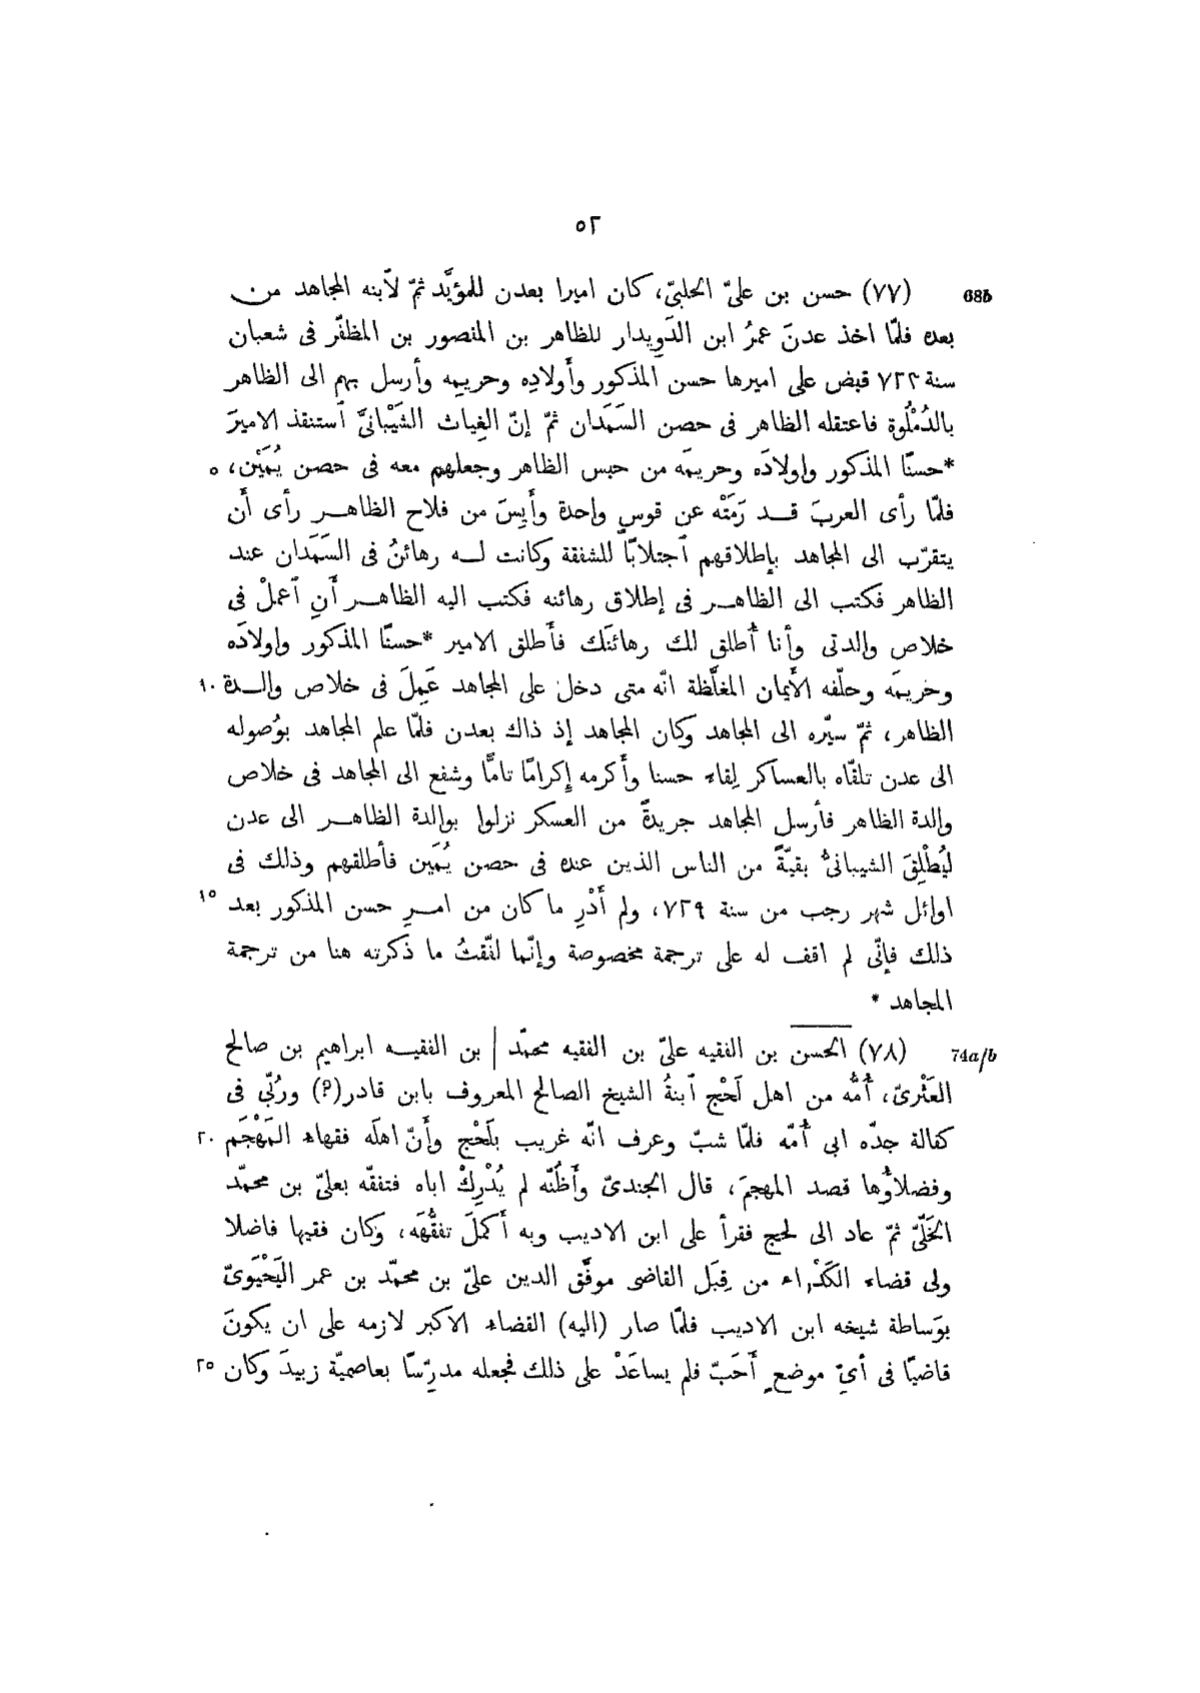 ٥٢
68b (٧٧) حسن بن علىّ الحلبىّ، كان اميرا بعدن للمؤيَّد ثمّ لٱبنه المجاهد من
بعده فلمّا اخذ عدنَ عمرُ ابن الدَوِيدار للظاهر بن المنصور بن المظفّر فى شعبان
سنة ٧٢٢ قبض على اميرها حسن المذكور وأَولادِه وحريمِه وأرسل بهم الى الظاهر
بالدُمْلُوة فاعتقله الظاهر فى حصن السَمَدان ثمّ إنّ الغِياث الشَيْبانىَّ ٱستنقذ الاميرَ
*حسنًا المذكور واولادَه وحريمَه من حبس الظاهر وجعلهم معه فى حصن يُمَيْن، ٥
فلمّا رأى العربَ قد رَمَتْه عن قوس واحدة وأَيِسَ من فلاح الظاهر رأى أَن
يتقرّب الى المجاهد بإطلاقهم ٱجتلابًا للشفقة وكانت له رهائنُ فى السَمَدان عند
الظاهر فكتب الى الظاهر فى إطلاق رهائنه فكتب اليه الظاهر أَنِ ٱعملْ فى
خلاص والدتى وأنا أُطلق لك رهائنَك فأَطلق الامير *حسنًا المذكور واولادَه
وحريمَه وحلّفه الأَيمان المغلَّظة انّه متى دخل على المجاهد عَمِلَ فى خلاص والدة ١٠
الظاهر، ثمّ سيّره الى المجاهد وكان المجاهد إذ ذاك بعدن فلمّا علم المجاهد بوُصوله
الى عدن تلقّاه بالعساكر لِقاء حسنا وأكرمه إِكرامًا تامًّا وشفع الى المجاهد فى خلاص
والدة الظاهر فأرسل المجاهد جريدةً من العسكر نزلوا بوالدة الظاهر الى عدن
ليُطْلِقَ الشيبانىُّ بقيّةً من الناس الذين عنده فى حصن يُمَين فأطلقهم وذلك فى
اوائل شهر رجب من سنة ٧٢٩، ولم أَدْرِ ما كان من امرِ حسن المذكور بعد ١٥
ذلك فإنّى لم اقف له على ترجمة مخصوصة وإنّما لفّقتُ ما ذكرته هنا من ترجمة
المجاهد *
74a/b (٧٨) الحسن بن الفقيه علىّ بن الفقيه محمّد | بن الفقيه ابراهيم بن صالح
العَثْرىّ، أُمُّه من اهل لَحْج ٱبنةُ الشيخ الصالح المعروف بابن قادر(?) ورُبّى فى
كفالة جدّه ابى أُمّه فلمّا شبّ وعرف انّه غريب بلَحْج وأَنّ اهلَه فقهاء المَهْجَم ٢٠
وفضلاؤُها قصد المهجمَ، قال الجندىّ وأَظُنّه لم يُدْرِكْ اباه فتفقّه بعلىّ بن محمّد
الخَلّىّ ثمّ عاد الى لحج فقرأ على ابن الاديب وبه أَكملَ تفقُّهَه، وكان فقيها فاضلا
ولى قضاء الكَدْراء من قِبَل القاضى موفَّق الدين علىّ بن محمّد بن عمر اليَحْيَوىّ
بوَساطة شيخه ابن الاديب فلمّا صار (اليه) القضاء الاكبر لازمه على ان يكونَ
قاضيًا فى أىِّ موضعٍ أَحَبّ فلم يساعَدْ على ذلك فجعله مدرِّسًا بعاصميّة زبيدَ وكان ٢٥